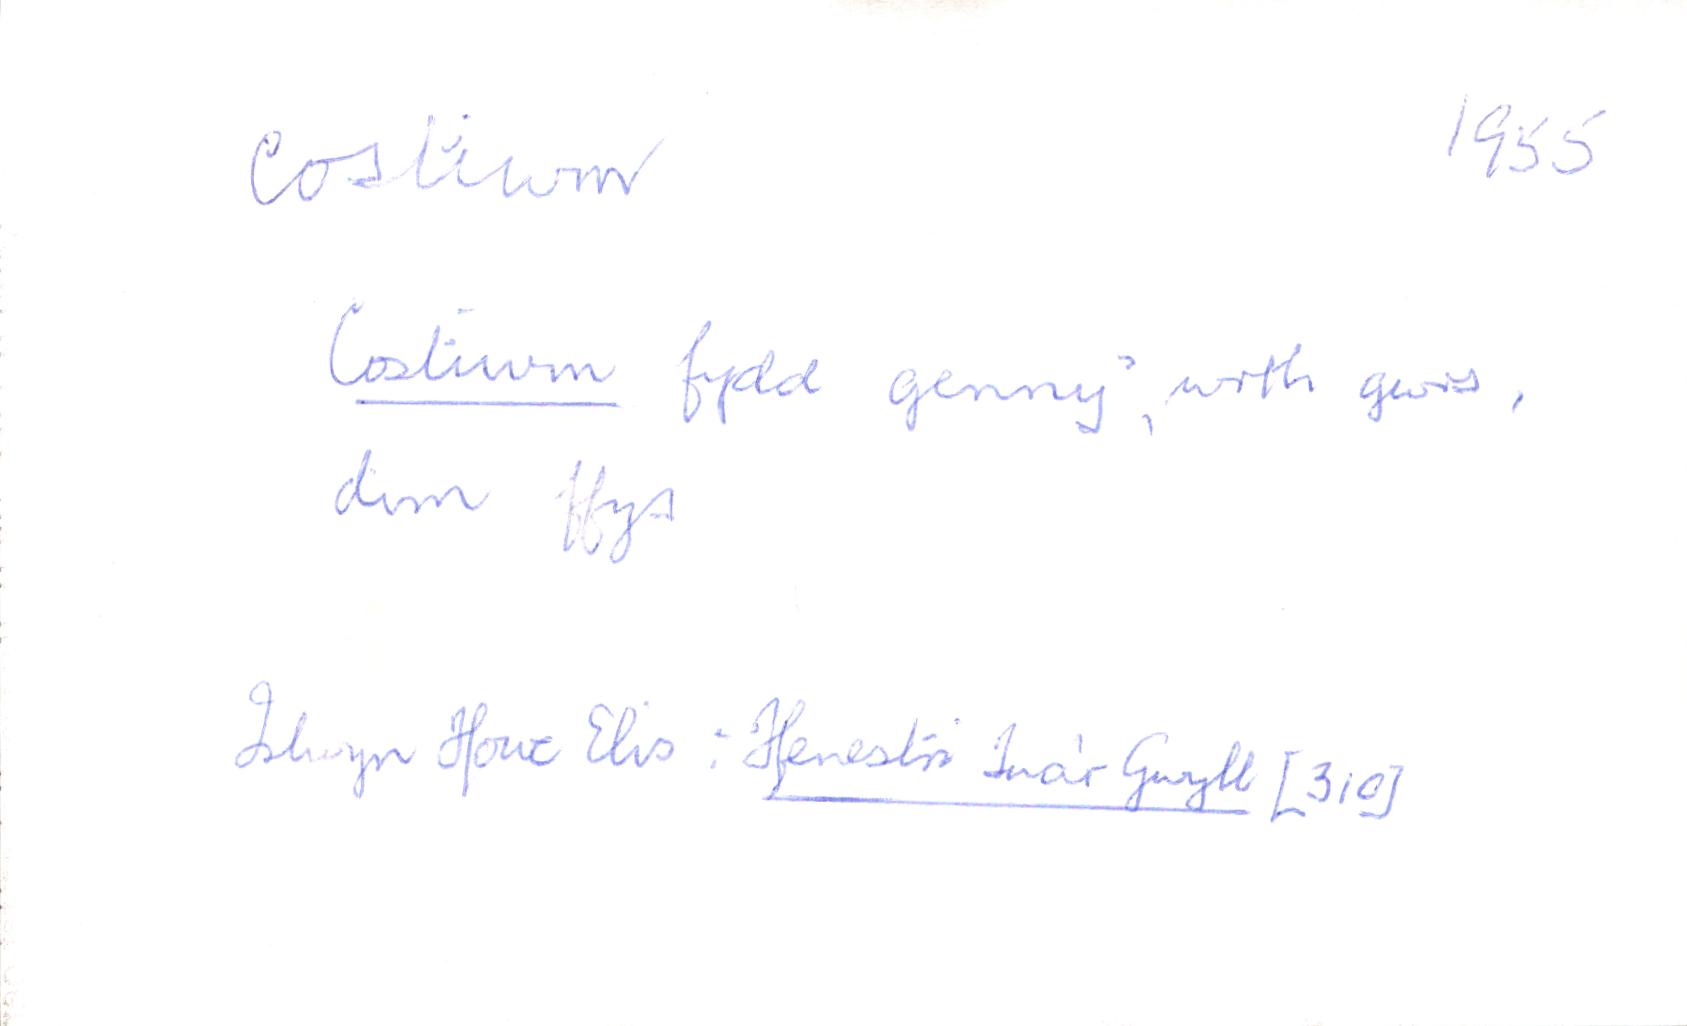 costiwm 1955
Costiwm fydd gennyf, wrth gwrs,
dim ffys
Islwyn Ffowc Elis : Ffenestri Tua'r Gwyll [310]